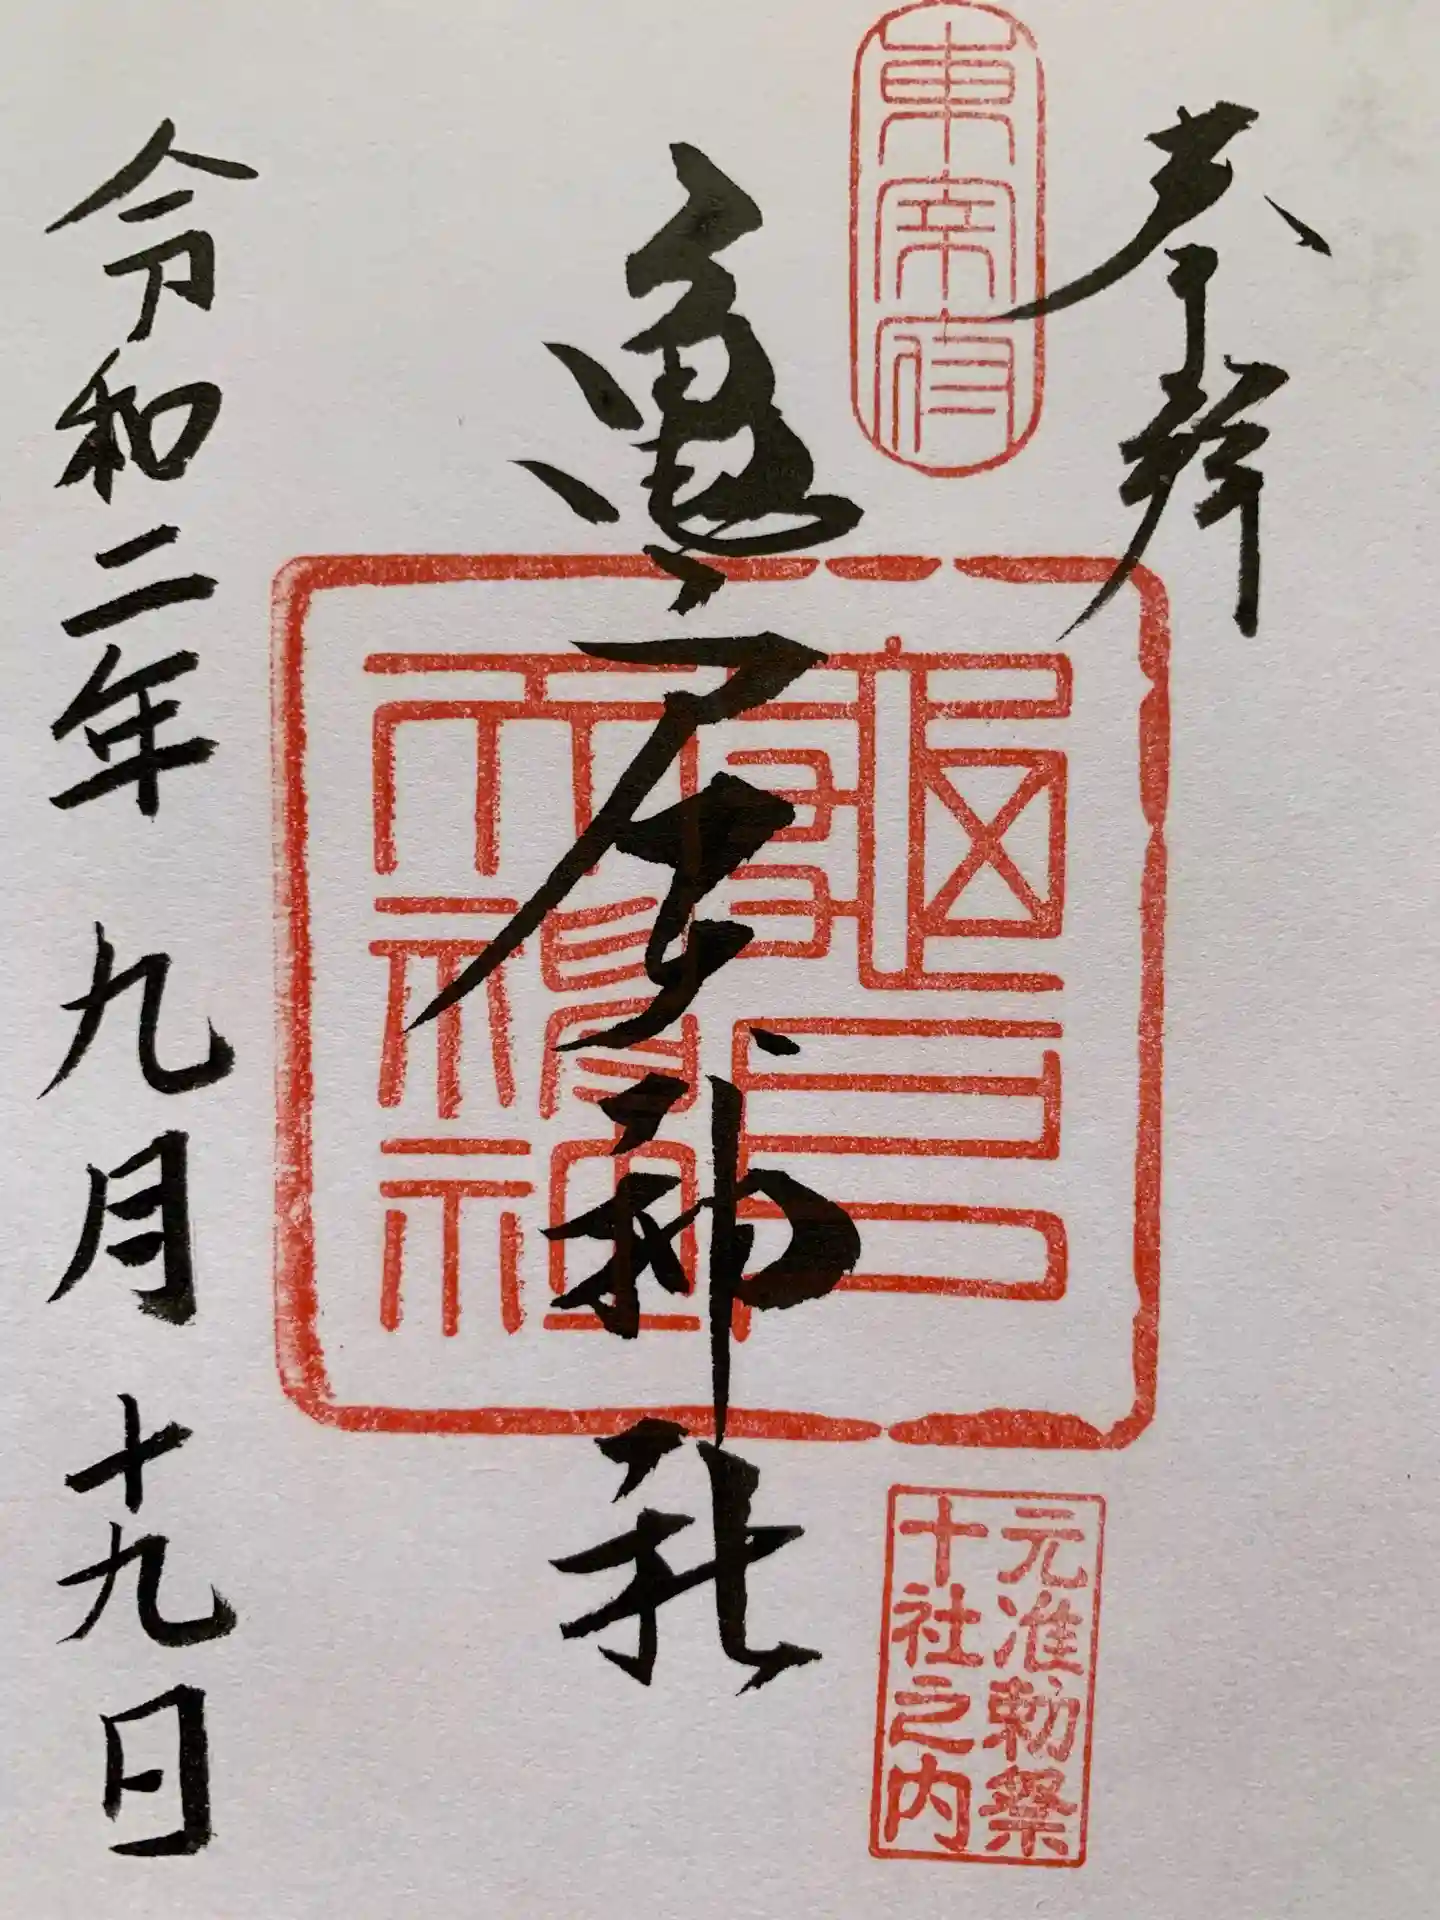 奉拜
東宰府
亀戸天神社
亀戸天神社
元准勅祭
十社之内
令和二年 九月 十九日